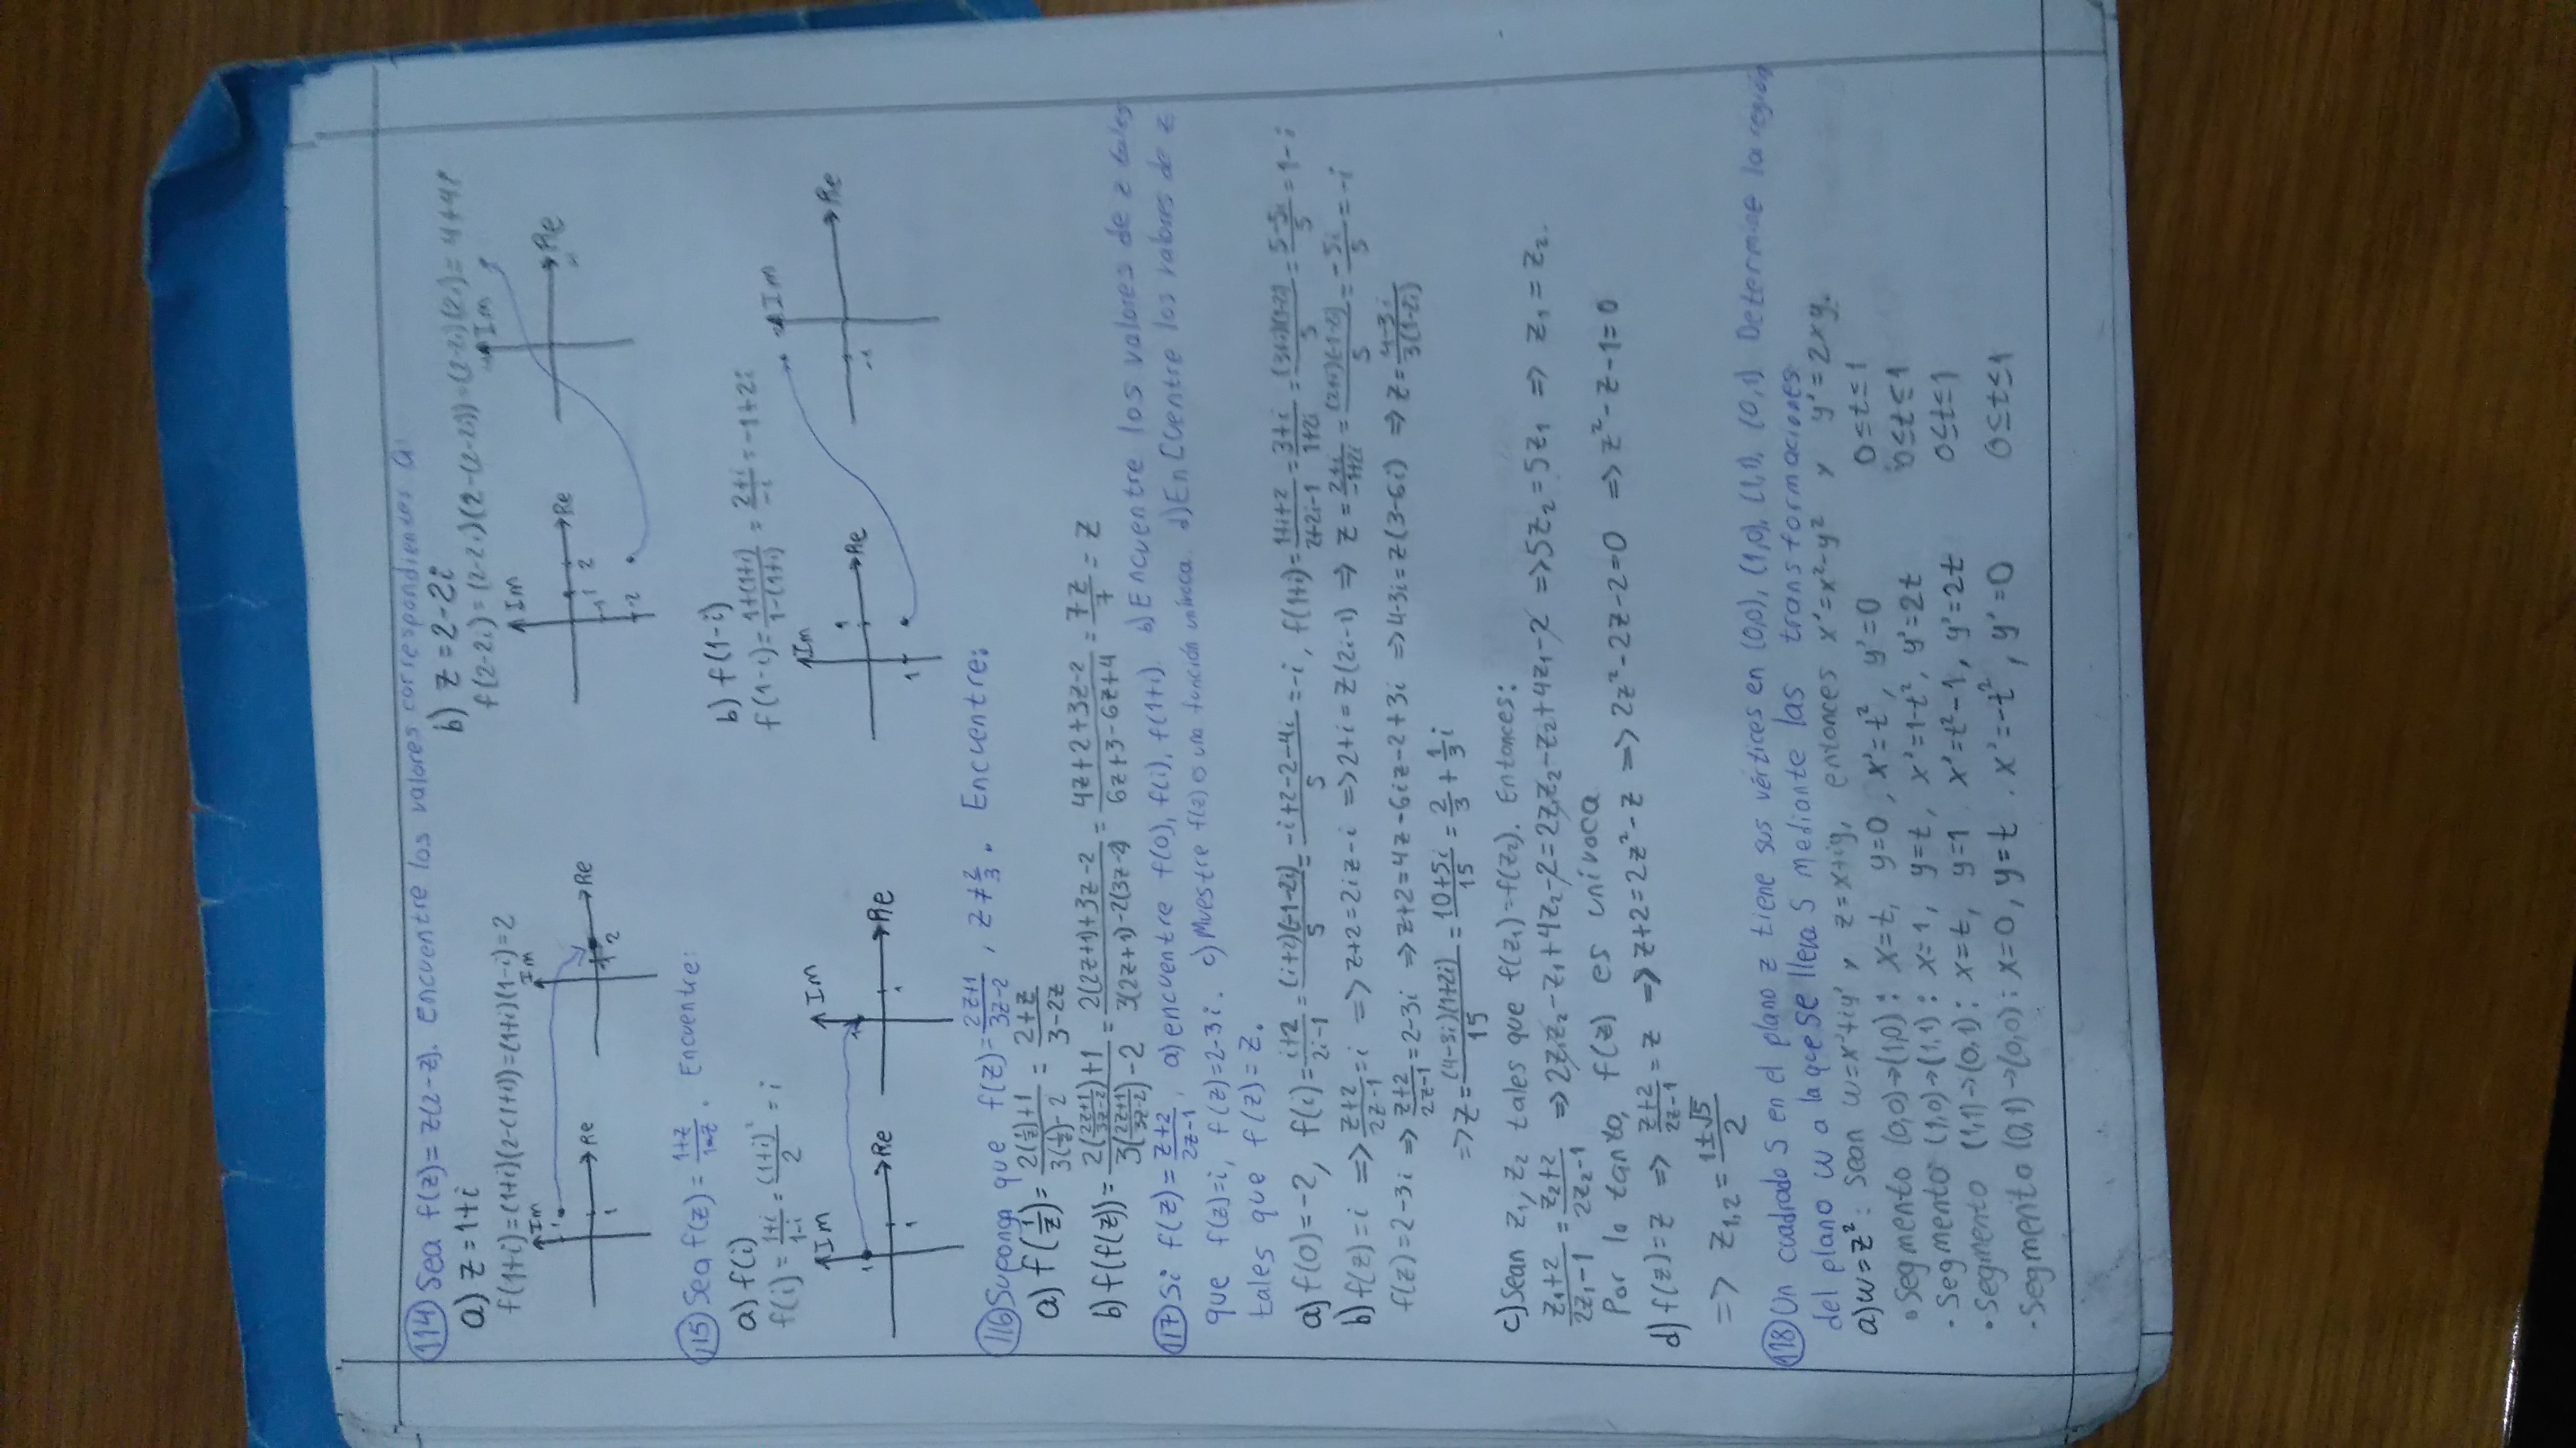 114 Sea f(z)= z(2-z). Encuentre los valores correspondientes a:
a) z=1+i
f(1+i)=(1+i)(2-(1+i))=(1+i)(1-i)=2
Im
1
1
Re
Im
1
2
Re
b) z=2-2i
f(2-2i)=(2-2i)(2-(2-2i))=(2-2i)(2i)=4+4i
Im
Re
1 2
-1
-2
Im
Re
115 Sea f(z)= (1+z)/(1-z̄). Encuentre:
a) f(i)
f(i)= (1+i)/(1-i) = (1+i)²/2 = i
Im
1
Re
1
Im
1
Re
1
b) f(1-i)
f(1-i)= (1+(1+i))/(1-(1+i)) = (2+i)/(-i) = -1+2i
Im
Re
1
Im
Re
-1
116 Suponga que f(z)= (2z+1)/(3z-2), z≠2/3. Encuentre:
a) f(1/z)= (2(1/z)+1)/(3(1/z)-2) = (2+z)/(3-2z)
b) f(f(z))= (2((2z+1)/(3z-2))+1)/(3((2z+1)/(3z-2))-2) = (2(2z+1)+3z-2)/(3(2z+1)-2(3z-2)) = (4z+2+3z-2)/(6z+3-6z+4) = 7z/7 = z
117 Si f(z)= (z+2)/(2z-1), a) encuentre f(0), f(i), f(1+i). b) Encuentre los valores de z tales
que f(z)=i, f(z)=2-3i. c) Muestre f(z) es una función unívoca. d) Encuentre los valores de z
tales que f(z)=z.
a) f(0)=-2, f(i)= (i+2)/(2i-1) = (i+2)(-1-2i)/5 = (-i+2-2-4i)/5 = -i, f(1+i)= (1+i+2)/(2+2i-1) = (3+i)/(1+2i) = (3+i)(1-2i)/5 = (5-5i)/5 = 1-i
b) f(z)=i => (z+2)/(2z-1)=i => z+2=2iz-i => 2+i=z(2i-1) => z= (2+i)/(-1+2i) = (2+i)(-1-2i)/5 = -5i/5 = -i
f(z)=2-3i => (z+2)/(2z-1)=2-3i => z+2=4z-6iz-2+3i => 4-3i=z(3-6i) => z= (4-3i)/(3(1-2i))
=> z= (4-3i)(1+2i)/15 = (10+5i)/15 = 2/3 + 1/3 i
c) Sean z₁, z₂ tales que f(z₁)=f(z₂). Entonces:
(z₁+2)/(2z₁-1) = (z₂+2)/(2z₂-1) => 2z₁z₂-z₁+4z₂-2=2z₁z₂-z₂+4z₁-2 => 5z₂=5z₁ => z₁=z₂.
Por lo tanto, f(z) es unívoca
d) f(z)=z => (z+2)/(2z-1)=z => z+2=2z²-z => 2z²-2z-2=0 => z²-z-1=0
=> z₁,₂= (1±√5)/2
118 Un cuadrado S en el plano z tiene sus vértices en (0,0), (1,0), (1,1), (0,1) Determine la región
del plano w a la que se lleva S mediante las transformaciones
a) w=z²: Sean w=x'+iy' y z=x+iy, entonces x'=x²-y² y y'=2xy.
• Segmento (0,0)→(1,0): x=t, y=0, x'=t², y'=0 0≤t≤1
• Segmento (1,0)→(1,1): x=1, y=t, x'=1-t², y'=2t 0≤t≤1
• Segmento (1,1)→(0,1): x=t, y=1 x'=t²-1, y'=2t 0≤t≤1
• Segmento (0,1)→(0,0): x=0, y=t. x'=-t², y'=0 0≤t≤1